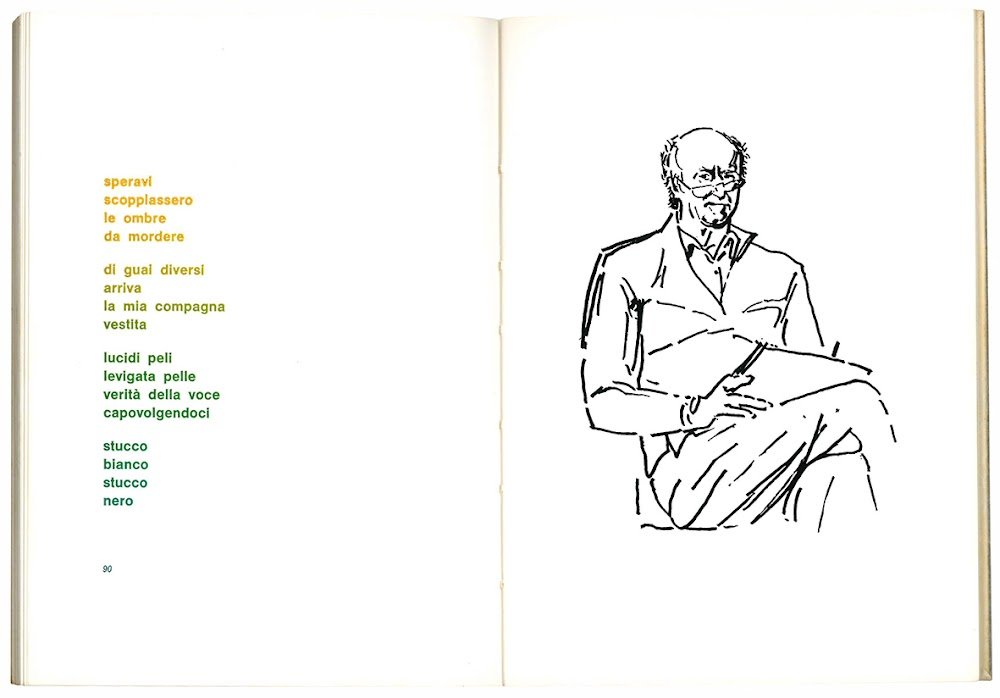 speravi
scoppiassero
le ombre
da mordere
di guai diversi
arriva
la mia compagna
vestita
lucidi peli
levigata pelle
verità della voce
capovolgendoci
stucco
bianco
stucco
nero
90